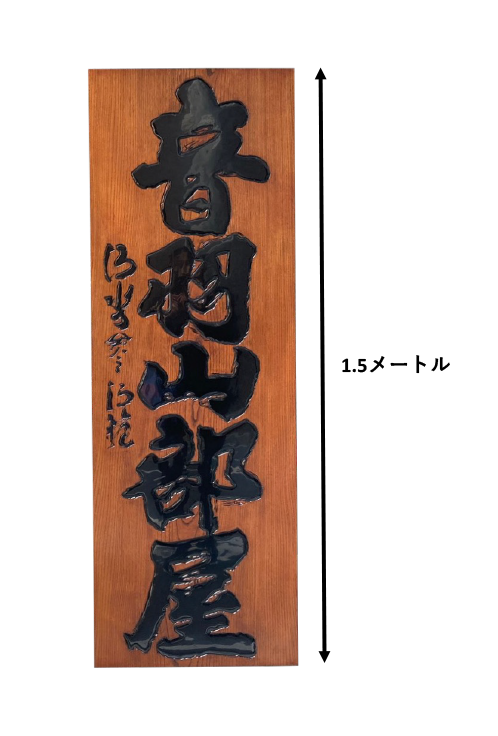 音羽山部屋
1.5メートル